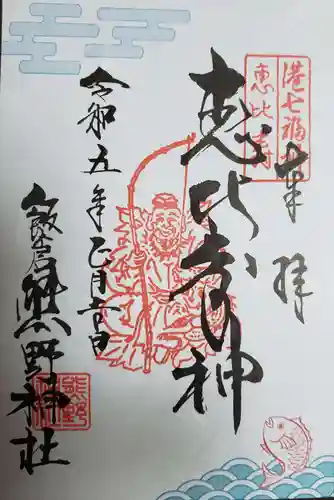 港七福神
恵比寿
奉拝
恵比寿神
令和五年正月日
飯倉熊野神社
熊野